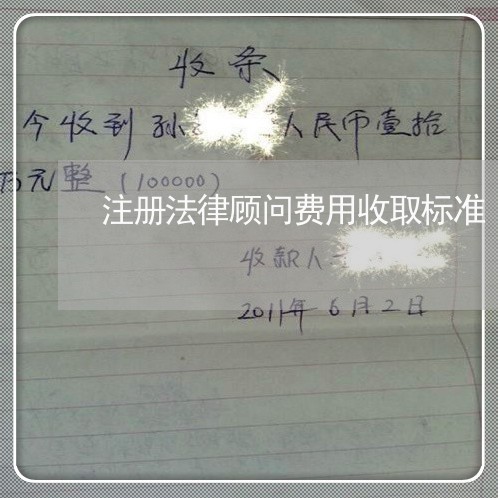 收条
今收到孙 人民币壹拾
万元整(100000)
注册法律顾问费用收取标准
收款人
2011年6月2日